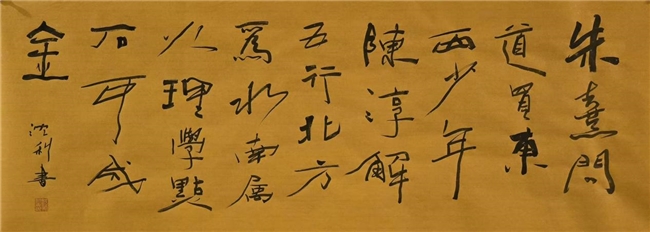 朱熹問
道買東
西少年
陳淳解
五行北方
爲水南属
火理學點
石可成
金
沈利書